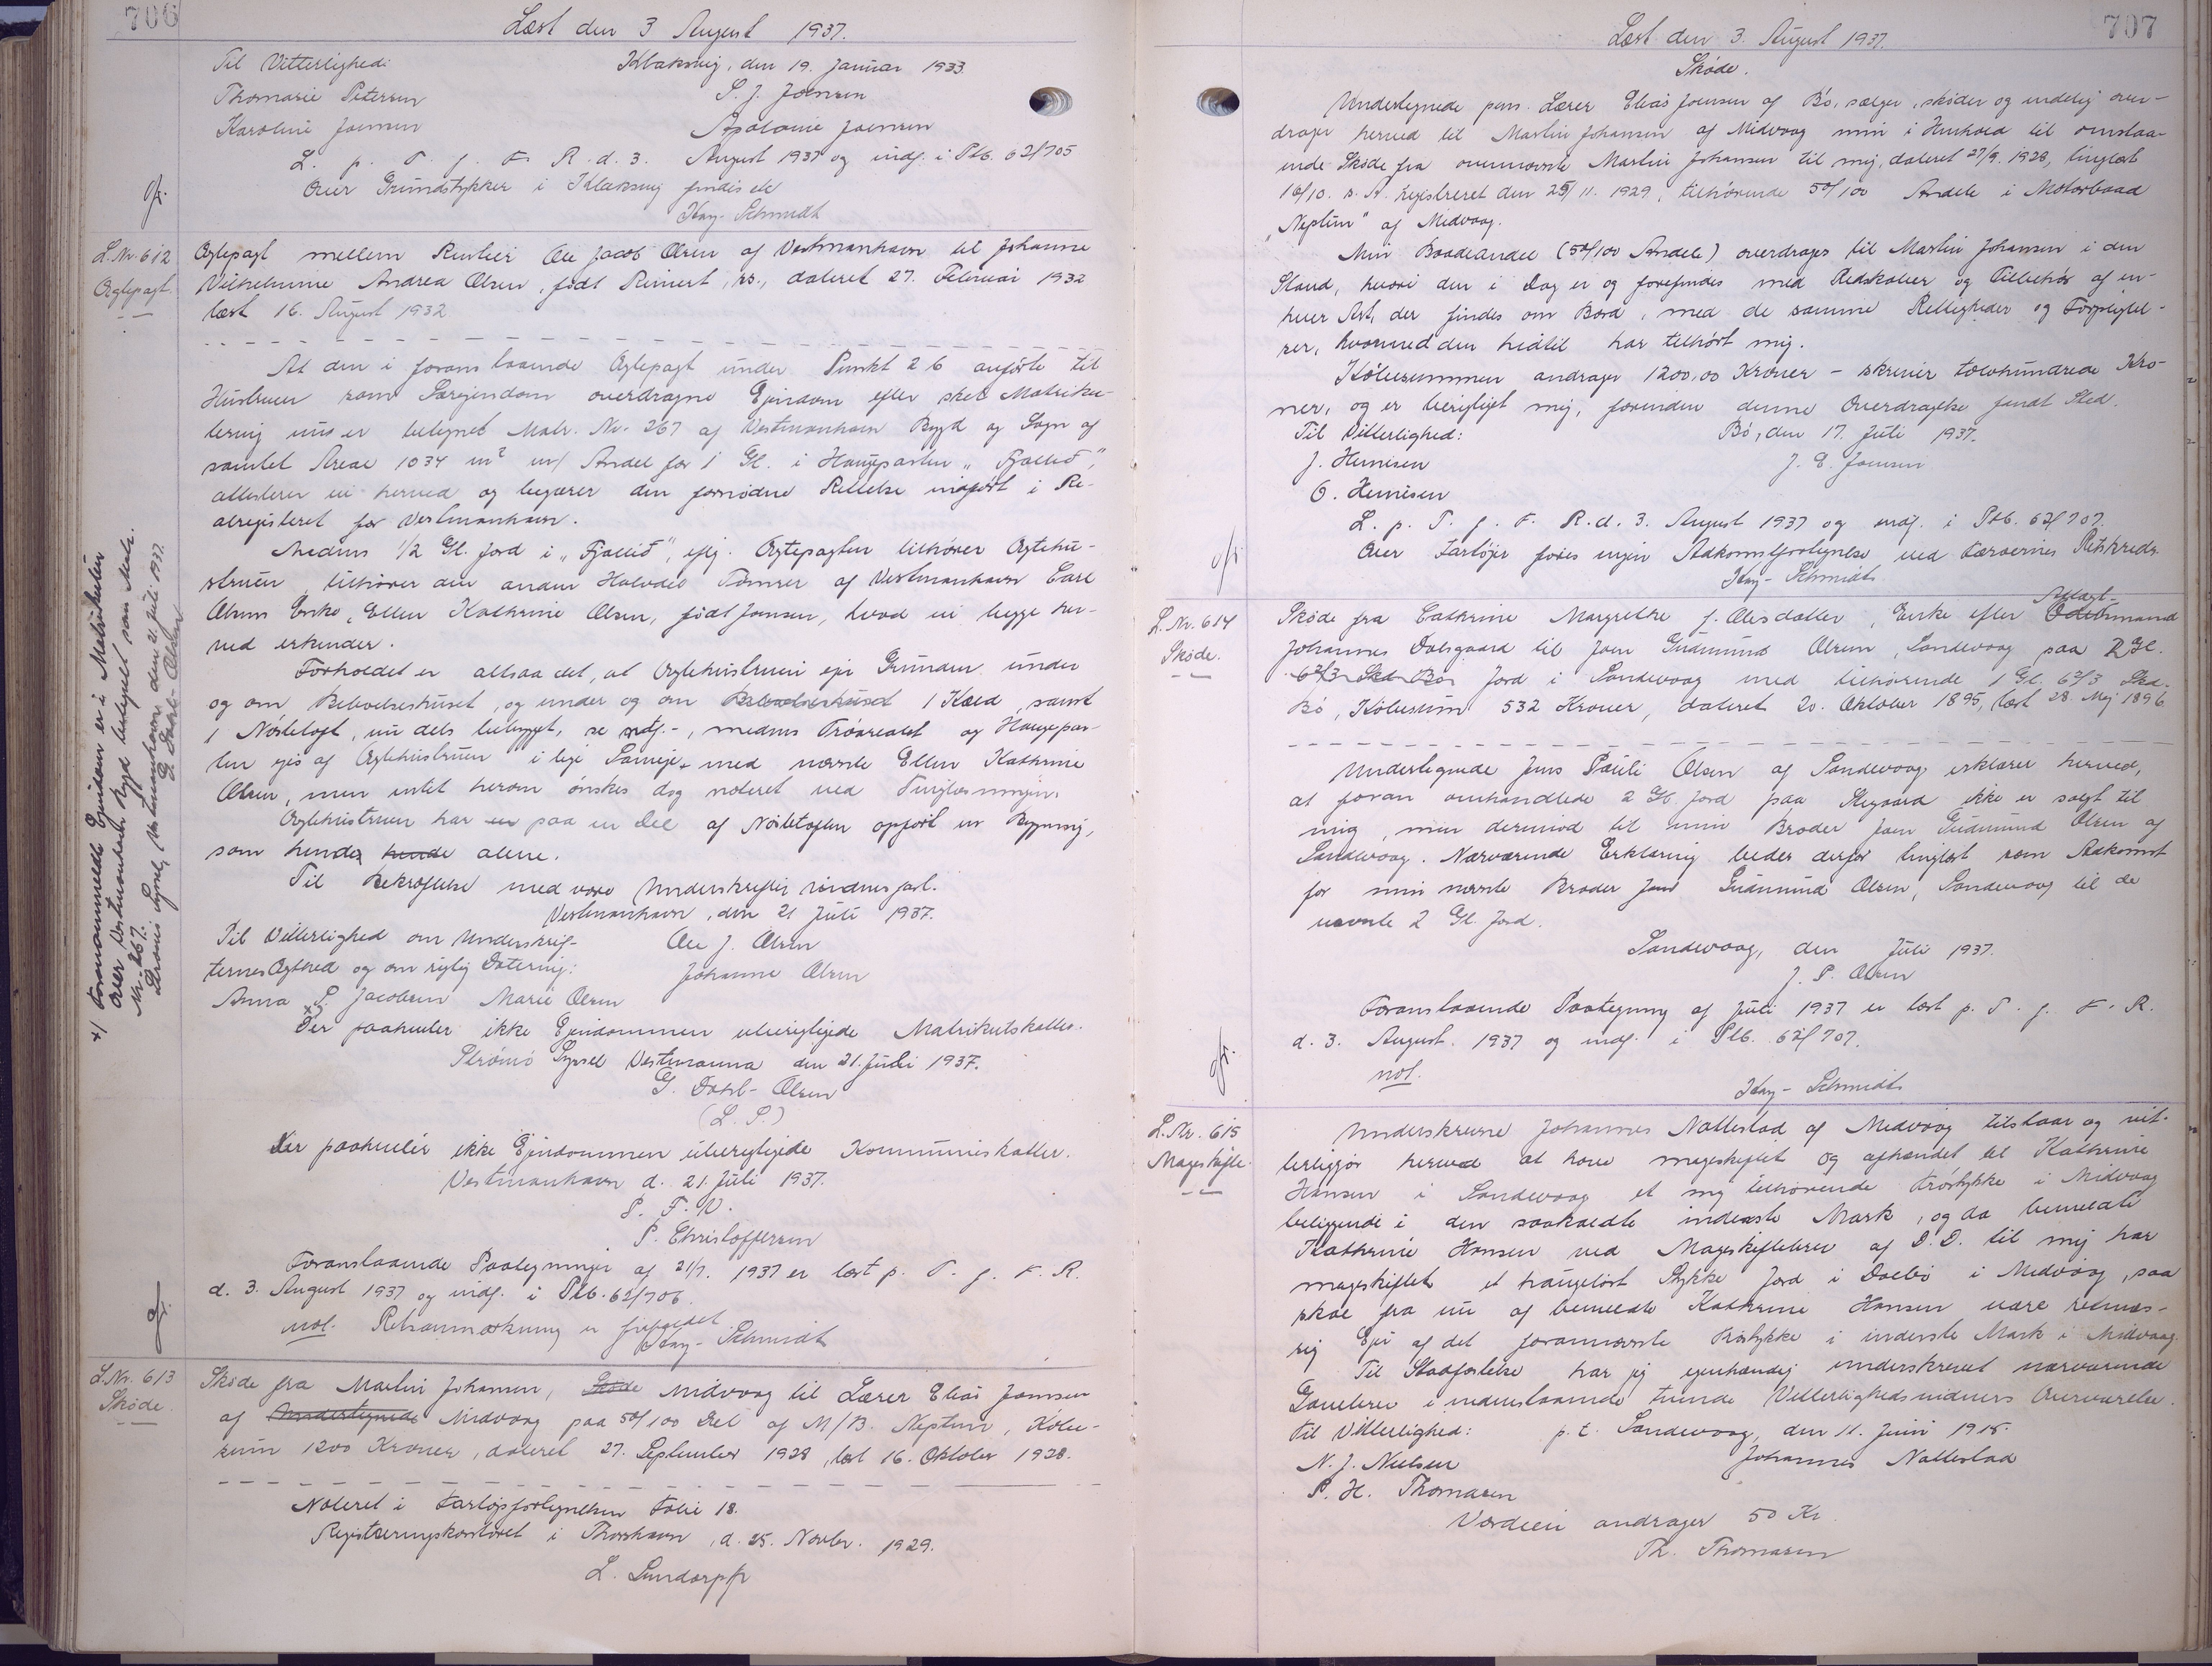 706
Læst den 3 August 1937.
Til Vitterlighed: Klaksvig, den 19. Januar 1933.
Thomasie Petersen S. J. Joensen
Karoline Joensen Apolonie Joensen
L. p. T. f. F. R. d. 3. August 1937 og indf. i Ptb. 62/705
Over Grundstykker i Klaksvig findes ele
Kay-Schmidt
L. Nr. 612
Ægtepagt.
Ægtepagt mellem Rentier Ole Jacob Olsen af Vestmanhavn til Johanne
Vilhelmine Andrea Olsen, født Reinert, ss., dateret 27. Februar 1932
læst 16. August 1932
At den i foranstaaende Ægtepagt under Punkt 2 b anførte til
Hustruen som Særejendom overdragne Ejendom efter sket Matriku-
lering nu er betegnet Matr. Nr. 267 af Vestmanhavn Bygd og Sogn af
samlet Areal 1034 m² m/ Andel for 1 Gl. i Haugeparten "Fjallið",
attesterer vi herved og begærer den fornødne Rettelse indført i Re-
alregisteret for Vestmanhavn.
Medens 1/2 Gl. Jord i "Fjallið", eflg. Ægtepagten tilhører Ægtehu-
struen, tilhører den anden Halvdel Tømrer af Vestmanhavn Carl
Olsens Enke, Ellen Kathrine Olsen, født Joensen, hvad vi begge her-
ved erkender.
Forholdet er altsaa det, at Ægtehustruen ejer Grunden under
og om Beboelseshuset, og under og om Beboelseshuset 1 Kæld, samt
1 Nóstetoft, nu dels bebygget, se ndf. -, medens Tróarealet og Haugepar-
ten ejes af Ægtehustruen i lige Sameje med nævnte Ellen Kathrine
Olsen, men intet herom ønskes dog noteret ved Tinglæsningen.
Ægtehustruen har en paa en Del af Nóstetoften opført en Bygning,
som hendes hende alene.
Til Bekræftelse med vore Underskrifter vidnesfast.
Vestmanhavn, den 21 Juli 1937.
Til Vitterlighed om Underskrif- Ole J. Olsen
ternes Ægthed og om rigtig Datering: Johanne Olsen
Anna P. Jacobsen Marie Olsen
x) Der paahviler ikke Ejendommen uberigtigede Matrikulskatter.
Strømø Syssel Vestmanna den 21. Juli 1937.
G. Dahl-Olsen
(L. S.)
Der paahviler ikke Ejendommen uberigtigede Kommuneskatter.
Vestmanhavn d. 21. Juli 1937.
P. F. V.
P. Christoffersen
Foranstaaende Paategninger af 21/7. 1937 er læst p. T. f. F. R.
d. 3. August 1937 og indf. i Ptb. 62/706.
not. Retsanmærkning er frafaldet
Kay-Schmidt
x) Fornævnte Ejendom er i Matrikulen
over Vestmanhavn Bygd betegnet som Matr.
Nr. 267.
Strømø Syssel, Vestmanhavn den 21. Juli 1937.
G. Dahl-Olsen
L. Nr. 613
Skøde.
Skøde fra Martin Johansen, Skøde Midvaag til Lærer Elias Joensen
af Undertegnede Midvaag paa 50/100 Del af M/B. Neptun, Købe-
sum 1200 Kroner, dateret 27. September 1928, læst 16. Oktober 1928.
Noteret i Fartøjsfortegnelsen Folie 18.
Registreringskontoret i Thorshavn, d. 25. Novbr. 1929.
L. Sundorph
707
Læst den 3. August 1937.
Skøde.
Undertegnede pens. Lærer Elias Joensen af Bø, sælger, skøder og endelig over-
drager herved til Martin Johansen af Midvaag min i Henhold til omstaa-
ende Skøde fra ovennævnte Martin Johansen til mig, dateret 27/9. 1928, tinglæst
16/10. s. A. registreret den 25/11. 1929, tilhørende 50/100 Andele i Motorbaad
"Neptun" af Midvaag.
Min Baadeandel (50/100 Andele) overdrages til Martin Johansen i den
Stand, hvori den i Dag er og forefindes med Redskaber og Tilbehør af en-
hver Art, der findes om Bord, med de samme Rettigheder og Forpligtel-
ser, hvormed den hidtil har tilhørt mig.
Købesummen andrager 1200,00 Kroner - skriver tolvhundrede Kro-
ner, og er berigtiget mig, forinden denne Overdragelse fandt Sted.
Til Vitterlighed: Bø, den 17. Juli 1937.
J. Heinesen J. E. Joensen
O. Heinesen
L. p. T. f. F. R. d. 3. August 1937 og indf. i Ptb. 62/707.
Over Fartøjer føres ingen Adkomstfortegnelse ved Færøernes Retskreds.
Kay-Schmidt
L. Nr. 614
Skøde.
Skøde fra Cathrine Margrethe f. Olesdatter, Enke efter Odelsmand
Johannes Dalsgaard til Joen Gudmund Olsen, Sandevaag paa 2 Gl.
6 2/3 Skd. Bø Jord i Sandevaag med tilhørende 1 Gl. 6 2/3 Skd.
Bø, Købesum 532 Kroner, dateret 20. Oktober 1895, læst 28. Maj 1896
Undertegnede Jens Pauli Olsen af Sandevaag erklærer herved,
at foran omhandlede 2 Gl. Jord paa Stegaard ikke er solgt til
mig, men derimod til min Broder Joen Gudmund Olsen af
Sandevaag. Nærværende Erklæring bedes derfor tinglæst som Adkomst
for min nævnte Broder Joen Gudmund Olsen, Sandevaag til de
nævnte 2 Gl. Jord.
Sandevaag, den Juli 1937.
J. P. Olsen
Foranstaaende Paategning af Juli 1937 er læst p. T. f. F. R.
d. 3. August. 1937 og indf. i Ptb. 62/707.
not.
Kay-Schmidt
L. Nr. 615
Mageskifte.
Underskrevne Johannes Nattestad af Midvaag tilstaar og vit-
terliggjør herved at have mageskiftet og afhændet til Kathrine
Hansen i Sandevaag et mig tilhørende Tróstykke i Midvaag
beliggende i den saakaldte inderste Mark, og da bemeldte
Kathrine Hansen ved Mageskiftebrev af D. D. til mig har
mageskiftet et haugeløst Stykke Jord i Dalbø i Midvaag, saa
skal fra nu af bemeldte Kathrine Hansen være retmæs-
sig Ejer af det forannævnte Tróstykke i inderste Mark i Midvaag.
Til Stadfæstelse har jeg egenhændig underskrevet nærværende
i nedenstaaende tvende Vitterlighedsvidners Overværelse.
Til Vitterlighed: p. t. Sandevaag, den 11. Juni 1915.
N. J. Nielsen Johannes Nattestad
P. H. Thomasen
Værdien andrager 50 Kr.
Th. Thomasen